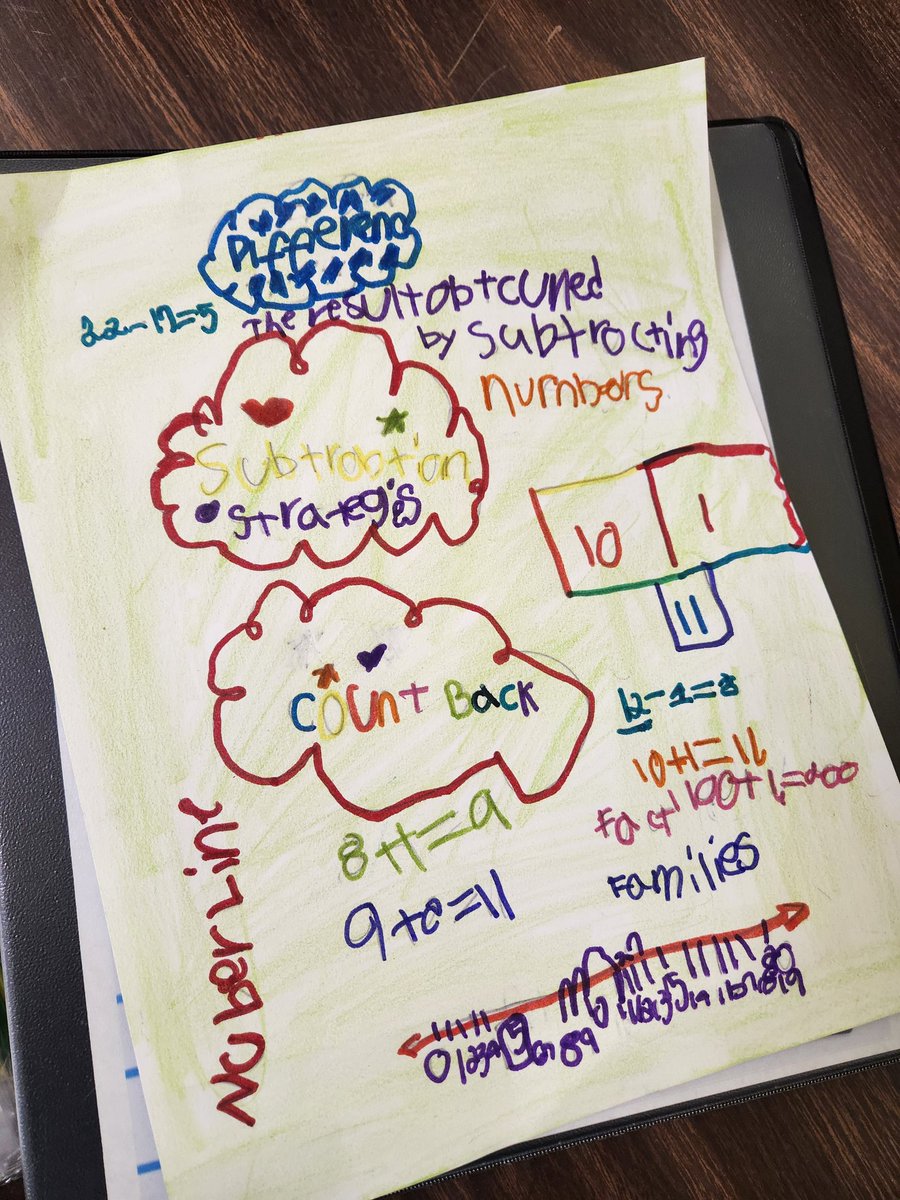 Differenc
22-17=5
The result obtcuned
by subtracting
numbers
Subtrabtion
strategis
10 1
11
Count Back
12-1=8
10+1=11
100+1=200
Fact
Families
8+1=9
9+c=11
Nuber Line
0 1 2 3 4
8 9
20